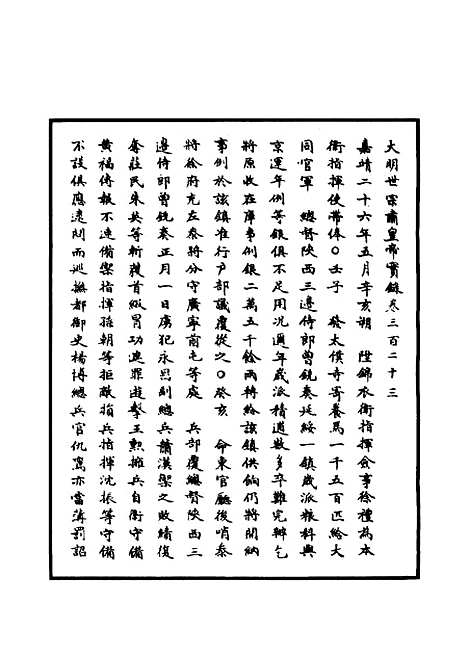 大明世宗肅皇帝實錄卷三百二十三
嘉靖二十六年五月辛亥朔　陞錦衣衛指揮僉事徐禮為本
衛指揮使帶俸○壬子　發太僕寺寄養馬一千五百匹給大
同官軍　總督陝西三邊侍郎曾銑奏延綏一鎮歲派糧料與
京運年例等銀俱不足用况適年歲派積逋數多卒難完辦乞
將原收在庫事例銀二萬五千餘兩轉給該鎮供餉仍將開納
事例於該鎮准行戶部議覆從之○癸亥　命東官廳後哨泰
將徐府充左泰將分守廣寧南屯等處　兵部覆總督陝西三
邊侍郎曾銑奏正月一日虜犯永昌副總兵蕭漢禦之敗績復
奪莊民朱英等斬獲首級冒功應罪遊擊王勲擁兵自衛守備
黃福傳報不速備禦指揮孫朝等拒敵損兵指揮沈振等守備
不設俱應逮問而巡撫都御史楊博總兵官仇鸞亦當薄罰詔